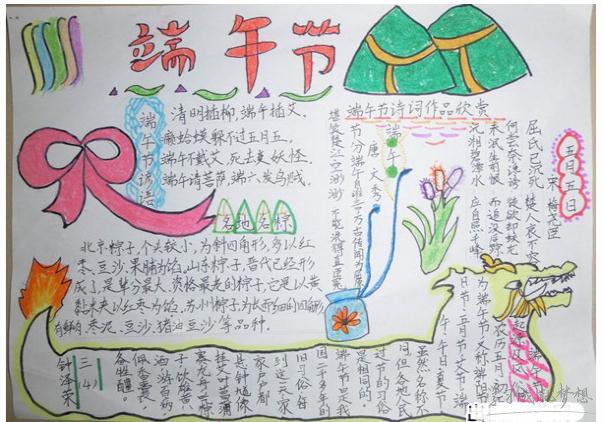 端午节
端午节谚语
清明插柳,端午插艾。
癞蛤蟆躲不过五月五。
端午不戴艾,死去变妖怪。
端午请菩萨,端六发乌贼。
各地名粽
北京粽子,个头较小,为斜四角形,多以红
枣、豆沙、果脯为馅,山东粽子,晋代已经形
成了,是单分最大、资格最老的粽子,它是以黄
黏米夹以红枣为馅,苏州粽子,为长而细的四角形
有鲜肉、枣泥、豆沙、猪油豆沙等品种。
端午节诗词作品欣赏
端午
唐 文秀
节分端午自谁言
万古传闻为屈原
堪笑楚江空渺渺
不能洗得直臣冤
五月五日
宋 梅尧臣
屈氏已沉死
楚人哀不容
何尝奈谗谤
徒欲却蛟龙
未泯生前恨
而追没后踪
沅湘碧潭水
应自照千峰
农历五月初五
为端午节,又称端阳节
午日节、五月节
虽然名称不
同,但各地人民
过节的习俗
是相同的。
端午节是我
国二千多年的
旧习俗,每
到这一天家
家户户都
悬钟馗像
挂艾叶菖蒲
赛龙舟、吃粽
子、饮雄黄
酒、游百病
佩香囊,
备牲醴。
三(4)
钟泽荣